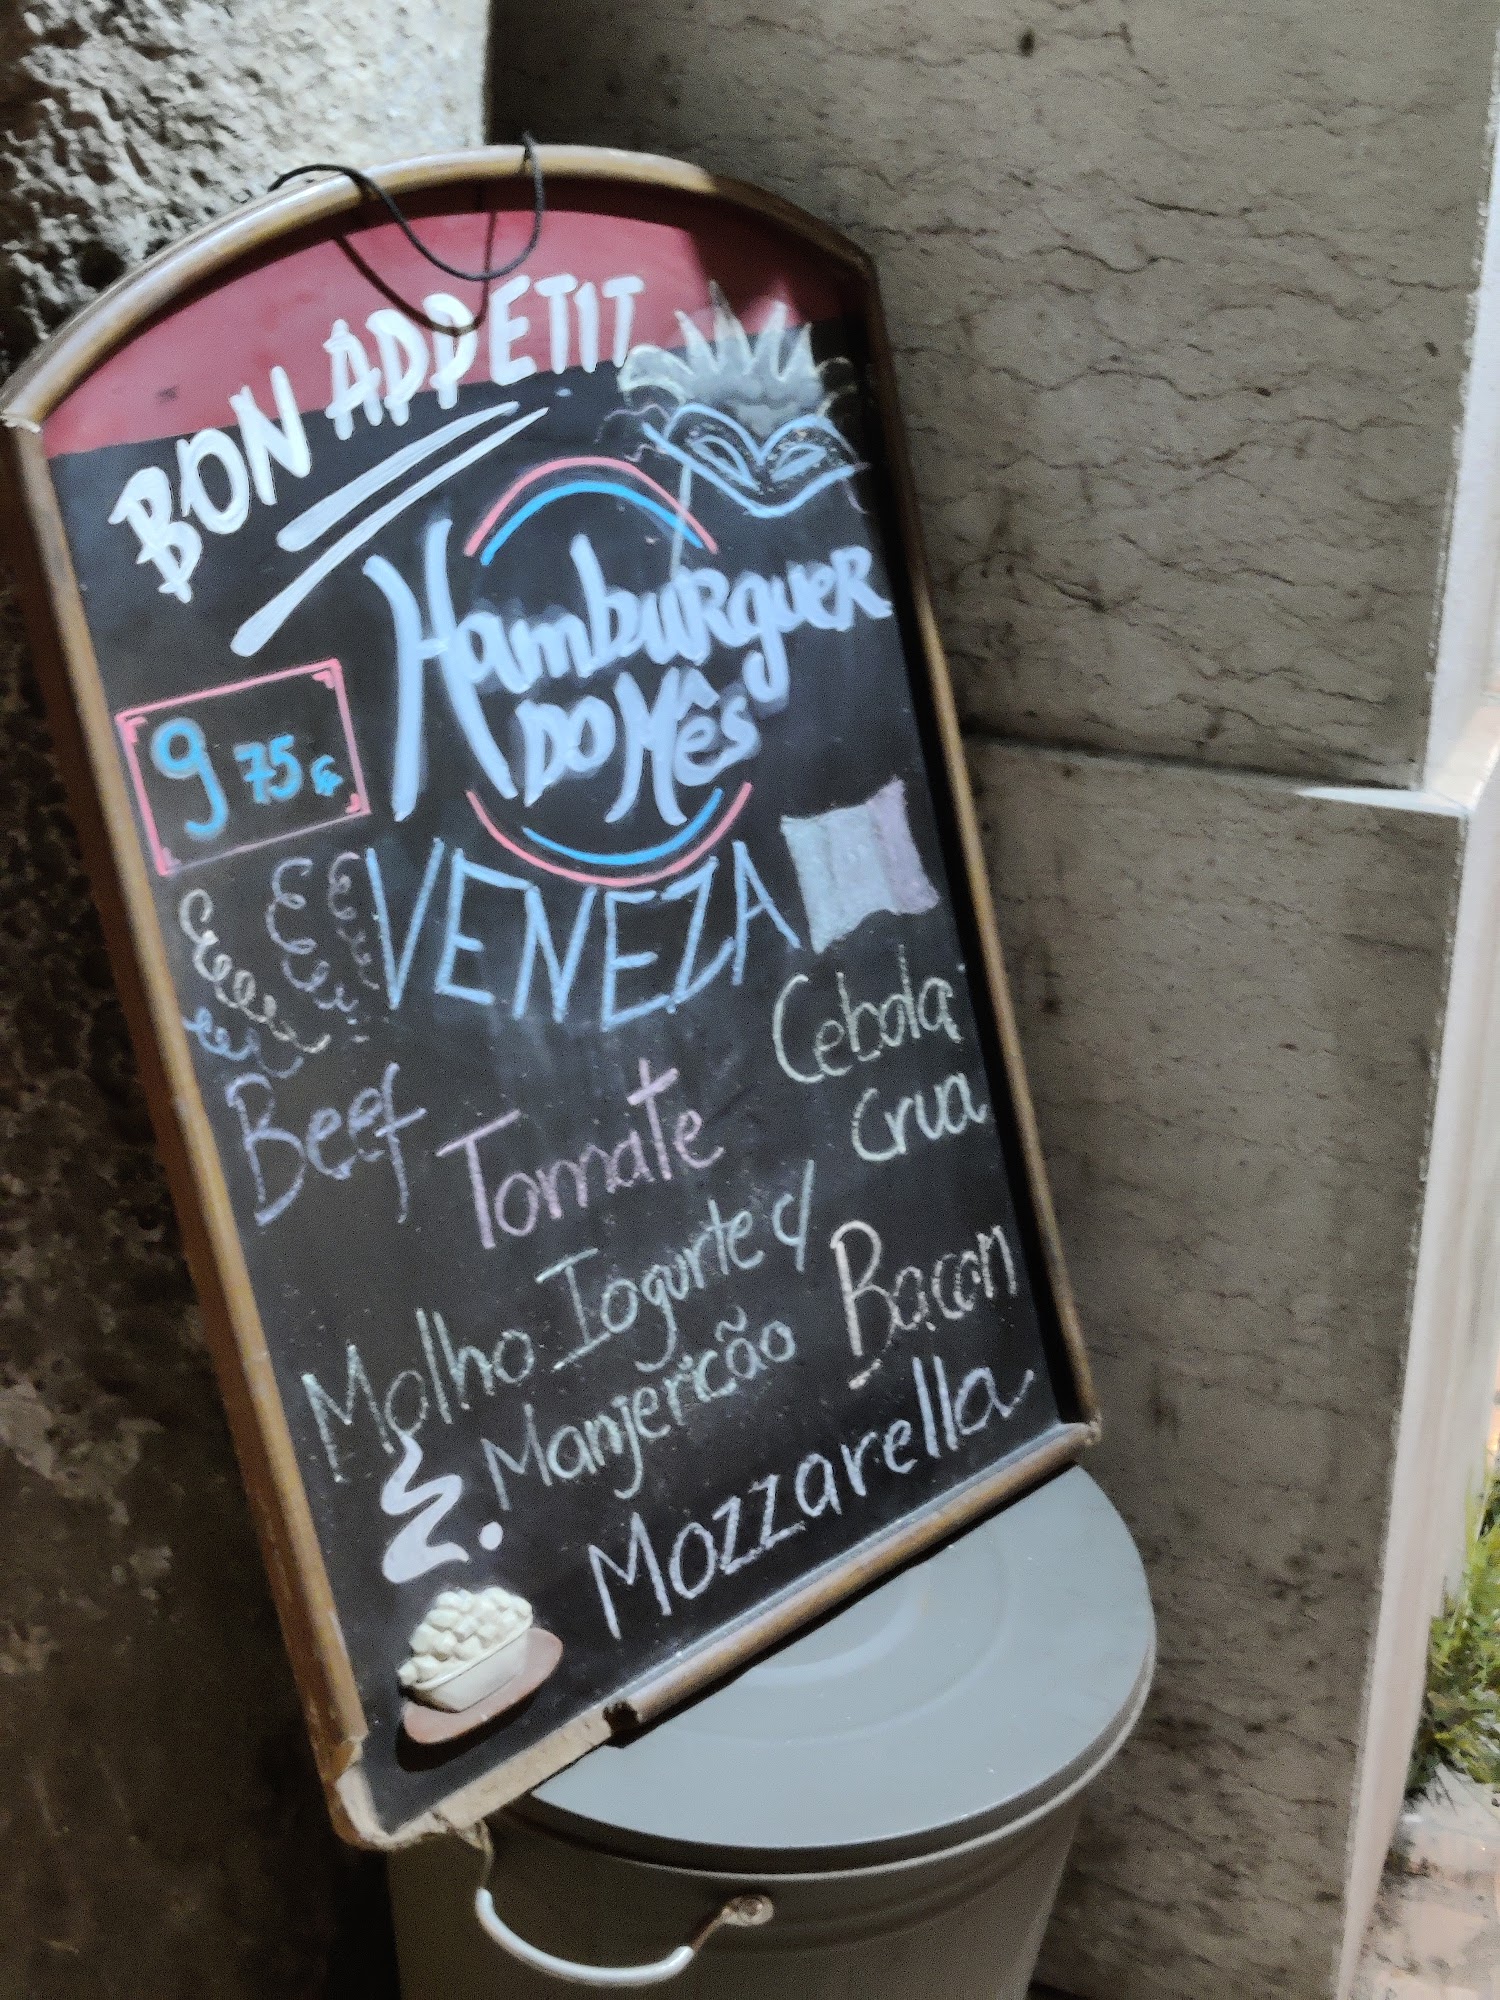 BON APPETIT
HamburguER
DO Mês
9 75 €
VENEZA
Cebola
Crua
Beef
Tomate
Molho Iogurte c/
Manjericão
Bacon
Mozzarella